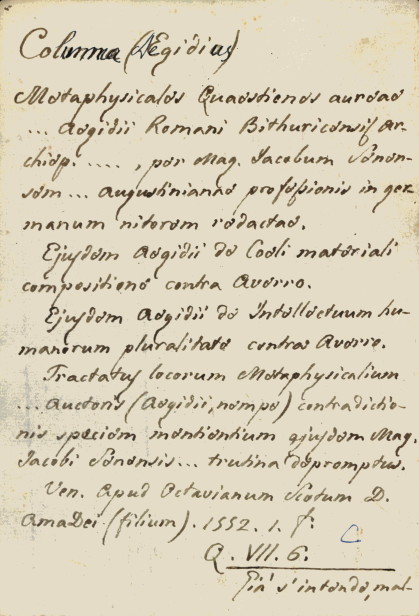 Columna (Aegidius)
Metaphysicales Quaestiones aureae
... Aegidii Romani Bithuricensis Ar-
chiep. ...., per Mag. Jacobum Senen-
sem ... Augustinianae professionis in ger
manum nitorem redactae.
Ejusdem Aegidii de Coeli materiali
compositione contra Averro.
Ejusdem Aegidii de Intellectuum hu-
manorum pluralitate contra Averro.
Tractatus locorum Metaphysicalium
... auctoris (Aegidii, nempe) contradictio-
nis speciem mentientium ejusdem Mag.
Jacobi Senensis ... trutina depromptus.
Ven. Apud Octavianum Scotum D.
AmaDei (filium). 1552. 1. f.
C
Q. VII. 6.
Già s'intende, mal-